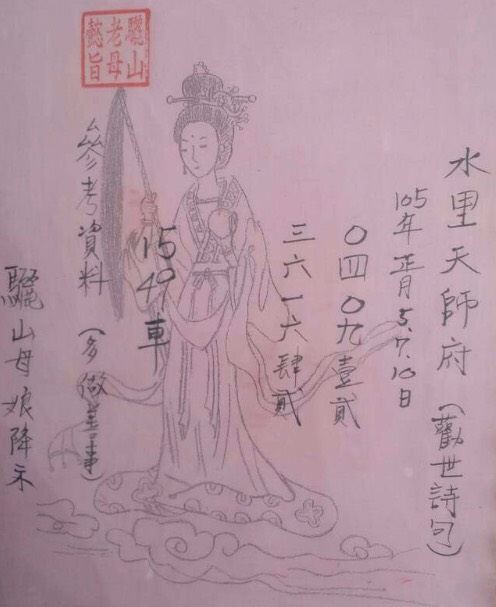 水里天師府（勸世詩句）
105年正月5.7.10日
〇四〇九壹貳
三六一六肆貳
1549車
參考資料（多做善事）
驪山母娘降示
驪山老母懿旨